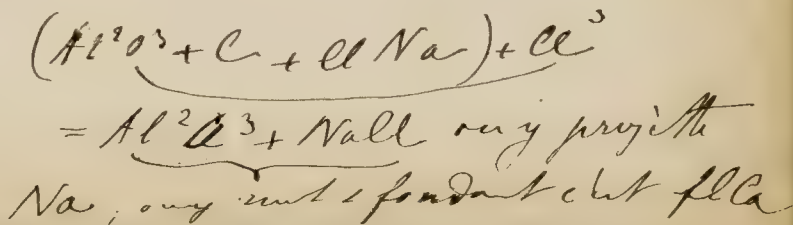 (Al²O³ + C + Cl Na) + Cl³
= Al²Cl³ + NaCl on y projette
Na, on y met 1 fondant c'est flCa